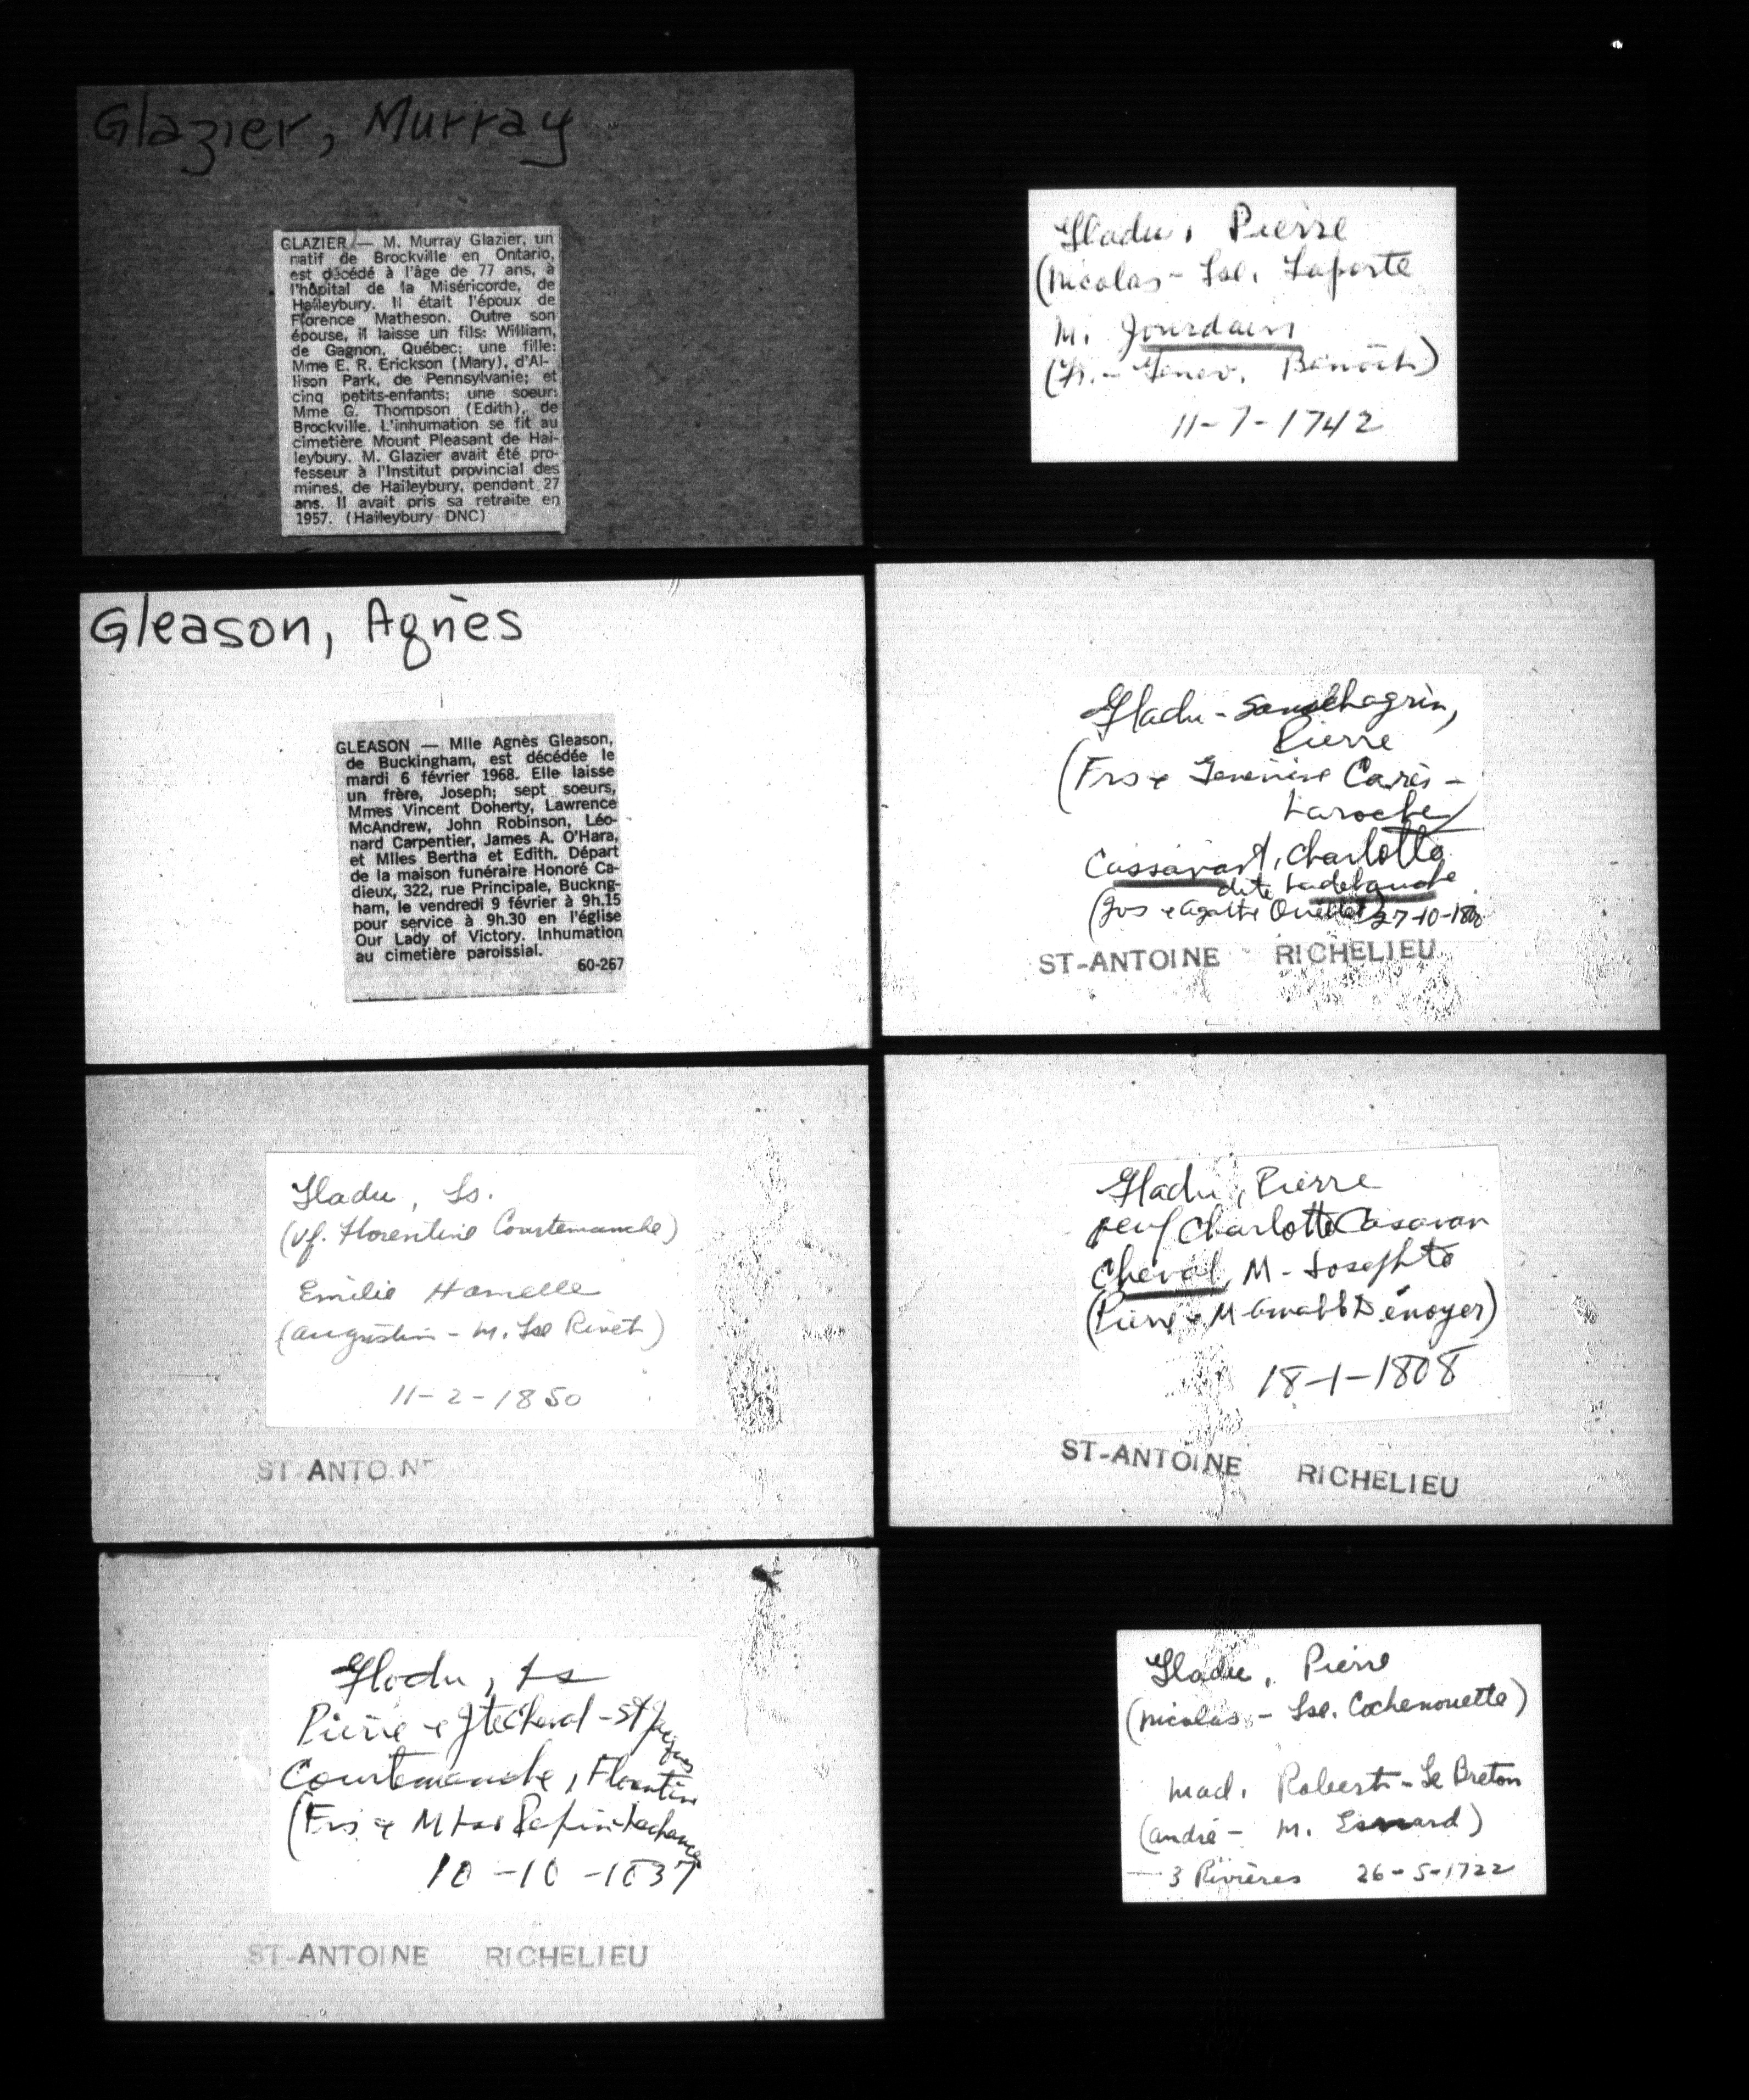 Glazier, Murray
GLAZIER — M. Murray Glazier, un
natif de Brockville en Ontario,
est décédé à l'âge de 77 ans, à
l'hôpital de la Miséricorde, de
Haileybury. Il était l'époux de
Florence Matheson. Outre son
épouse, il laisse un fils: William,
de Gagnon, Québec; une fille:
Mme E. R. Erickson (Mary), d'Al-
lison Park, de Pennsylvanie; et
cinq petits-enfants; une soeur:
Mme G. Thompson (Edith), de
Brockville. L'inhumation se fit au
cimetière Mount Pleasant de Hai-
leybury. M. Glazier avait été pro-
fesseur à l'Institut provincial des
mines, de Haileybury, pendant 27
ans. Il avait pris sa retraite en
1957. (Haileybury DNC)
Gleason, Agnès
GLEASON — Mlle Agnès Gleason,
de Buckingham, est décédée le
mardi 6 février 1968. Elle laisse
un frère, Joseph; sept soeurs,
Mmes Vincent Doherty, Lawrence
McAndrew, John Robinson, Léo-
nard Carpentier, James A. O'Hara,
et Mlles Bertha et Edith. Départ
de la maison funéraire Honoré Ca-
dieux, 322, rue Principale, Buckng-
ham, le vendredi 9 février à 9h.15
pour service à 9h.30 en l'église
Our Lady of Victory. Inhumation
au cimetière paroissial.
60-267
Gladu, Ls.
(Vf. Florentine Courtemanche)
Emilie Hamelle
(Augustin - M. Lse Rivet)
11-2-1850
ST-ANTOINE
Gladu, Ls
Pierre & Jte Cheval - St Jacques
Courtemanche, Florentine
(Frs &
ST-ANTOINE RICHELIEU
Gladu, Pierre
(Nicolas - Lse. Laporte
M. Jourdain
(Fr. - Genev. Benoit)
11-7-1742
Gladu - Sanschagrin,
Pierre
(Frs & Geneviève Caris -
Laroche)
Cassavant, Charlotte
dite Ladebauche
(Jos & Agathe Ouellet)
ST-ANTOINE RICHELIEU
Gladu, Pierre
veuf Charlotte Casavan
Cheval, M-Josephte
(Pierre & M Amable Dénoyer)
18-1-1808
ST-ANTOINE RICHELIEU
Gladu, Pierre
(Nicolas - Lse. Cochenouette)
Mad. Robert - Le Breton
(André - M.
3 Rivières 26-5-1722